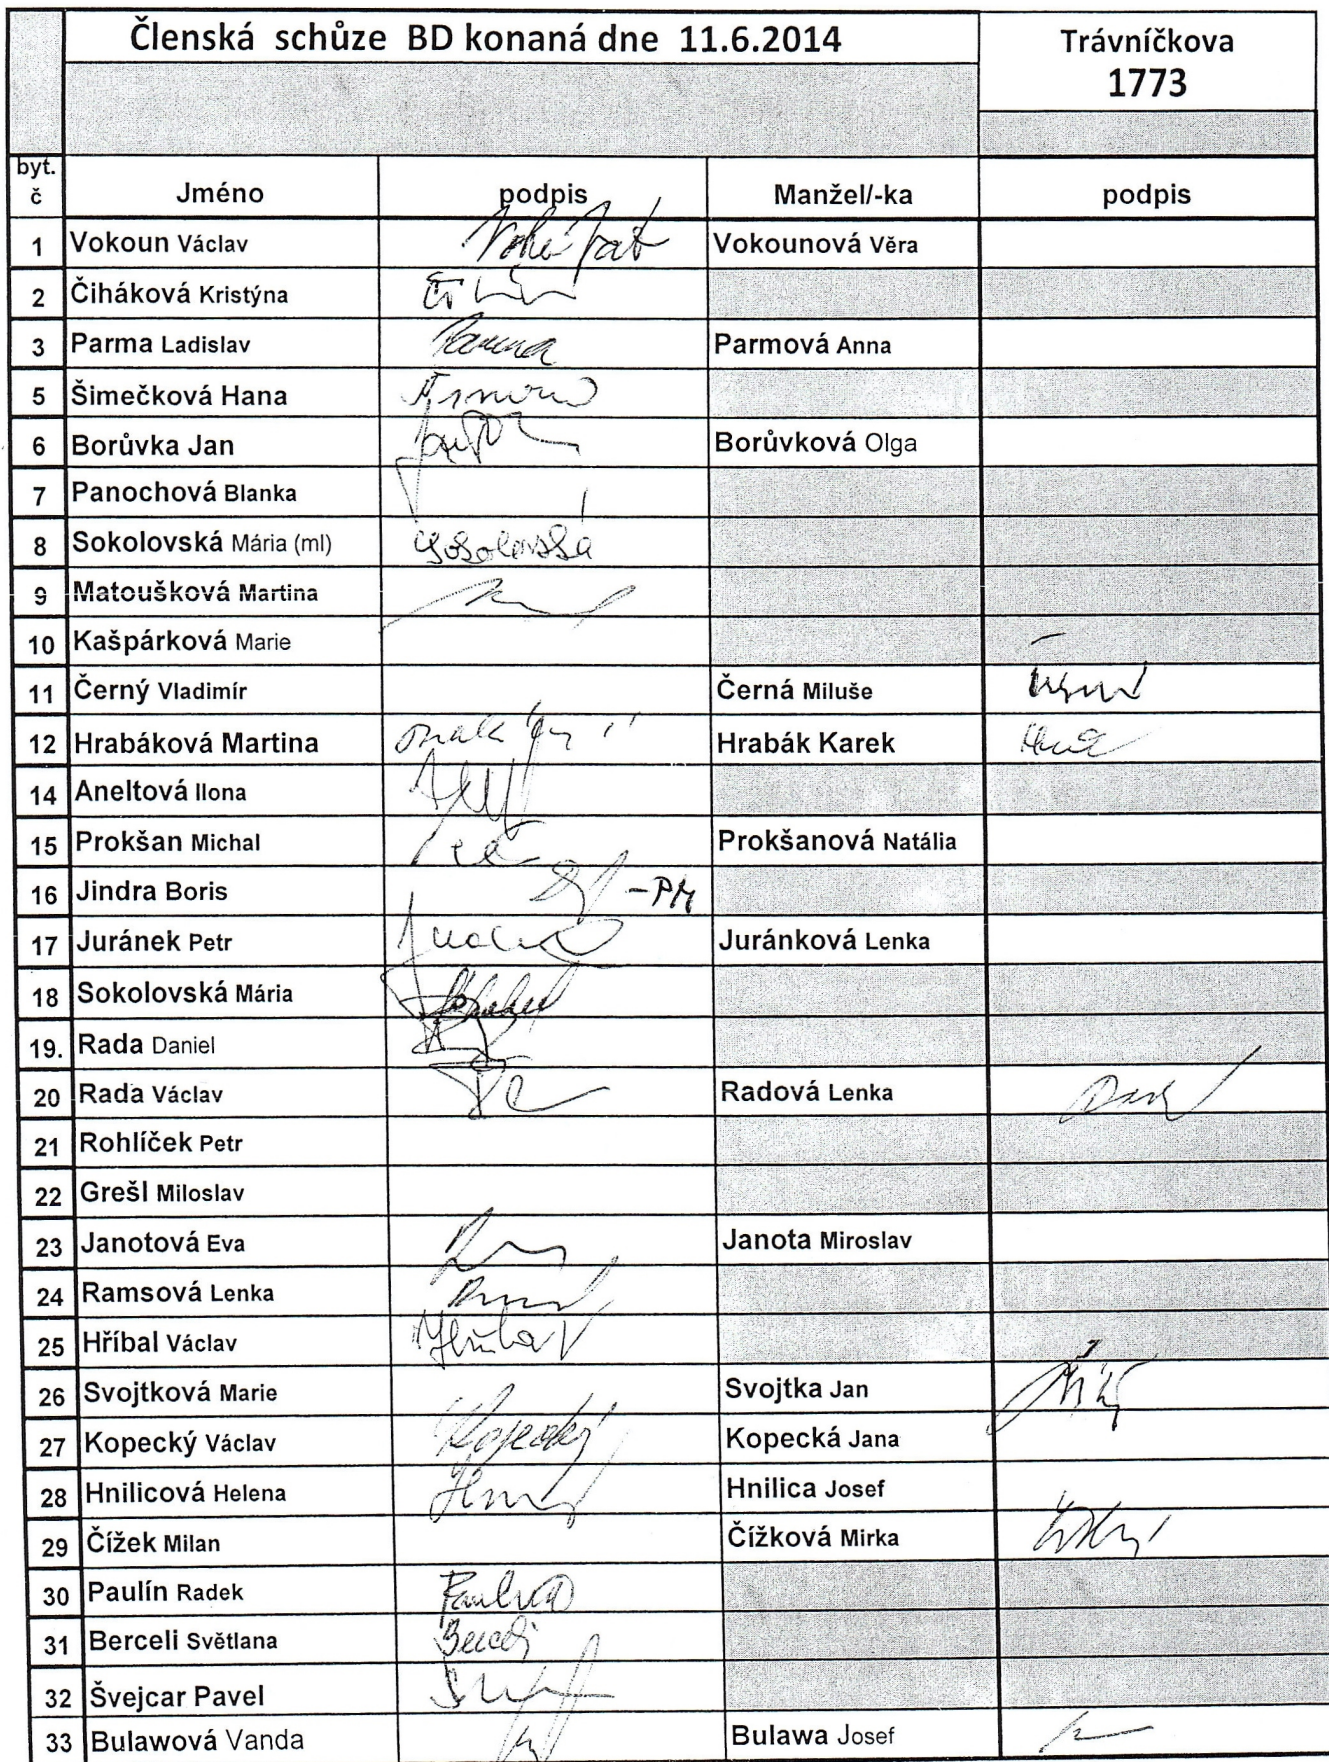 Členská schůze BD konaná dne 11.6.2014
Trávníčkova
1773
byt. č Jméno podpis Manžel/-ka podpis
1 Vokoun Václav Vokounová Věra
2 Čiháková Kristýna
3 Parma Ladislav Parma Parmová Anna
5 Šimečková Hana
6 Borůvka Jan Borůvková Olga
7 Panochová Blanka
8 Sokolovská Mária (ml) Sokolovská
9 Matoušková Martina
10 Kašpárková Marie
11 Černý Vladimír Černá Miluše
12 Hrabáková Martina Hrabák Karek
14 Aneltová Ilona
15 Prokšan Michal Prokšanová Natália
16 Jindra Boris -PM
17 Juránek Petr Juránková Lenka
18 Sokolovská Mária
19. Rada Daniel
20 Rada Václav Radová Lenka
21 Rohlíček Petr
22 Grešl Miloslav
23 Janotová Eva Janota Miroslav
24 Ramsová Lenka
25 Hříbal Václav
26 Svojtková Marie Svojtka Jan
27 Kopecký Václav Kopecký Kopecká Jana
28 Hnilicová Helena Hnilica Josef
29 Čížek Milan Čížková Mirka
30 Paulín Radek
31 Berceli Světlana
32 Švejcar Pavel
33 Bulawová Vanda Bulawa Josef